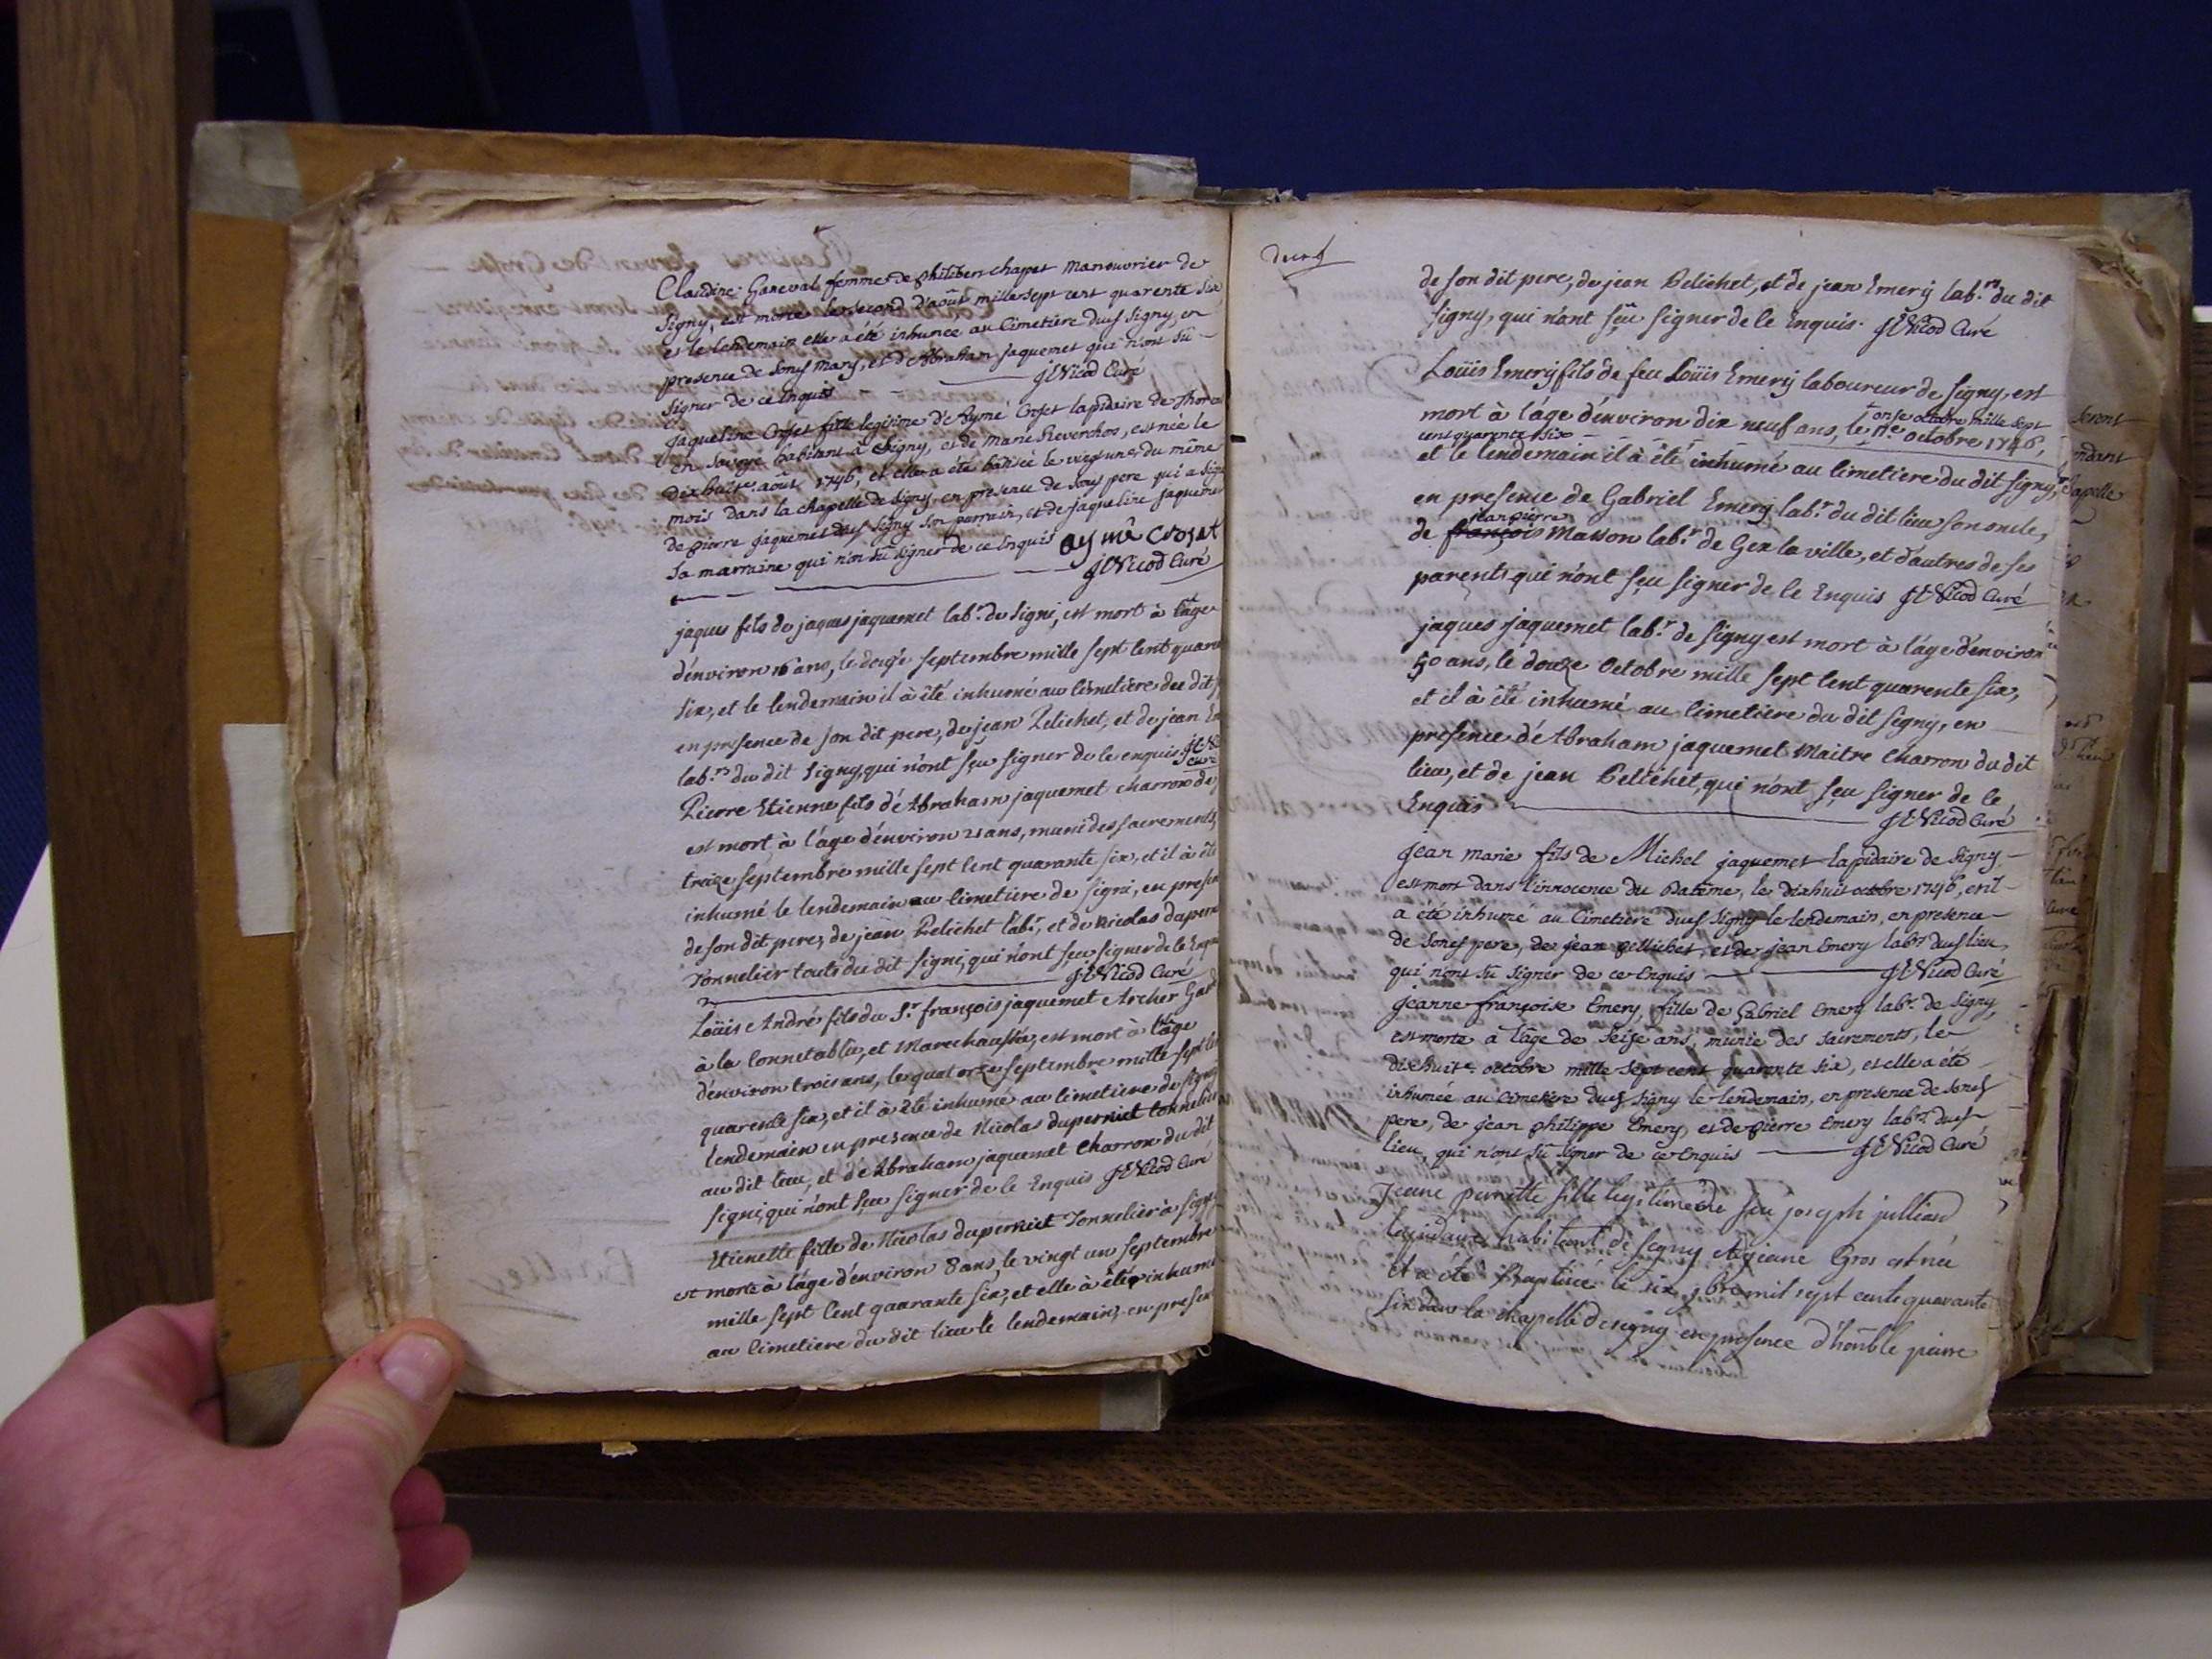 Claudine Ganeval femme de philibert chappet manouvrier de
Signy, est morte le second d'aoûst mille sept cent quarente six
et le lendemain elle a été inhumée au Cimetiere dud Signy, en
presence de sond mary, et d'Abraham jaquemet qui n'ont sû
Signer de ce enquis J E Nicod Curé
jaqueline Croset fille legitime d'Aymé Croset lapidaire de
en Savoye habitant à Signy, et de Marie Reverchon, est née le
dixhuit aôust 1746, et elle a été batisée le vingt une du même
mois dans la chapelle de Signy, en presence de sond pere qui a signé
de pierre jaquemet dud Signy son parrain, et de jaqueline jaquemet
Sa marraine qui n'on sû signer de ce enquis aymé Crosat
J E Nicod Curé
jaques fils de jaques jaquemet lab.r de Signi, est mort à l'âge
d'énviron 16 ans, le douze septembre mille sept cent quara
six, et le lendemain il à été inhumé au Cimetiere du dit
en presence de son dit pere, de jean Pelichet, et de jean Em
lab.rs du dit Signy, qui n'ont sçu signer de ce enquis J E N
Curé
Pierre Etienne fils d'Abraham jaquemet charron de
est mort à l'âge d'énviron 21 ans, muni des sacrements,
treize septembre mille sept cent quarante six, et il à été
inhumé le lendemain au Cimetiere de signi, en presen
de son dit pere, de jean Pelichet lab.r, et de Nicolas dupern
Tonnelier touts du dit signi, qui n'ont sçu signer de ce Enqui
J E Nicod Curé
Loüis André fils du S.r françois jaquemet Archer Gard
à la Connetablie, et Marechaussée, est mort à l'âge
d'environ trois ans, le quatorze septembre mille sept cent
quarente six, et il à été inhumé au Cimetiere de signy
lendemain en presence de Nicolas duperniet tonnelier
au dit lieu, et d'Abraham jaquemet Charron du dit
signi, qui n'ont sçu signer de ce Enquis J E Nicod Curé
Etienette fille de Nicolas duperniet Tonnelier à signy
est morte à l'âge d'environ 8 ans, le vingt un septembre
mille sept cent quarante six, et elle à été inhumé
au Cimetiere du dit lieu le lendemain, en presen
de son dit pere, de jean Pelichet, et de jean Emerij lab.rs du dit
signy, qui n'ont sçû signer de ce Enquis. J E Nicod Curé
Loüis Emerij fils de feu Loüis Emerij laboureur de signy, est
mort à l'âge d'énviron dix neuf ans, le 11e octobre 1746,
onse octobre mille sept
cent quarente six
et le lendemain il à été inhumé au Cimetiere du dit signy,
en presence de Gabriel Emerij lab.r du dit lieu son oncle,
jean pierre
de françois Masson lab.r de Gex la ville, et d'autres de ses
parents, qui n'ont sçu signer de ce Enquis J E Nicod Curé
jaques jaquemet lab.r de signy est mort à l'âge d'environ
50 ans, le douze Octobre mille sept cent quarente six,
et il à été inhumé au Cimetiere du dit signy, en
presence d'Abraham jaquemet Maitre Charron du dit
lieu, et de jean Pelichet, qui n'ont sçu signer de ce
Enquis J E Nicod Curé
Jean marie fils de Michel jaquemet Lapidaire de Signy
est mort dans l'innocence du Batême, le dixhuit octobre 1746, et il
a été inhumé au Cimetiere dud Signy le lendemain, en presence
de sond pere, de jean pellichet, et de jean Emery lab.rs dud lieu
qui n'ont sû signer de ce Enquis J E Nicod Curé
Jeanne françoise Emery, fille de Gabriel Emery lab.r de Signy,
est morte à l'âge de seise ans, munie des sacrements, le
dixhuit.e octobre mille sept cent quarente six, et elle a été
inhumée au Cimetiere dud Signy le lendemain, en presence de sond
pere, de jean philippe Emery, et de pierre Emery lab.rs dud
lieu, qui n'ont sû signer de ce Enquis J E Nicod Curé
Jeane pernette fille legitime de feu joseph julliard
lapidaire habitant de segny et de jeane Gros est née
et a été Baptisée le six 9bre mil sept cent quarante
six dans la chapelle de segny en presence d'honble pierre